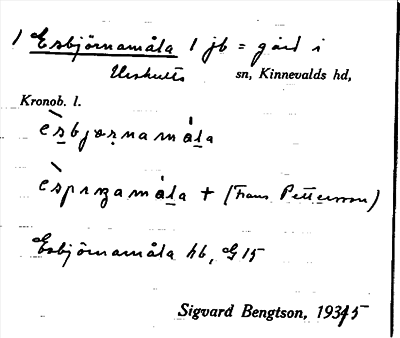 1 Esbjörnamåla 1 jb = gård i
Urshults sn, Kinnevalds hd,
Kronob. l.
èsbjørnamåla
èspṛnamåla + (Frans Pettersson)
Esbjörnamåla hb, G 15
Sigvard Bengtson, 1935